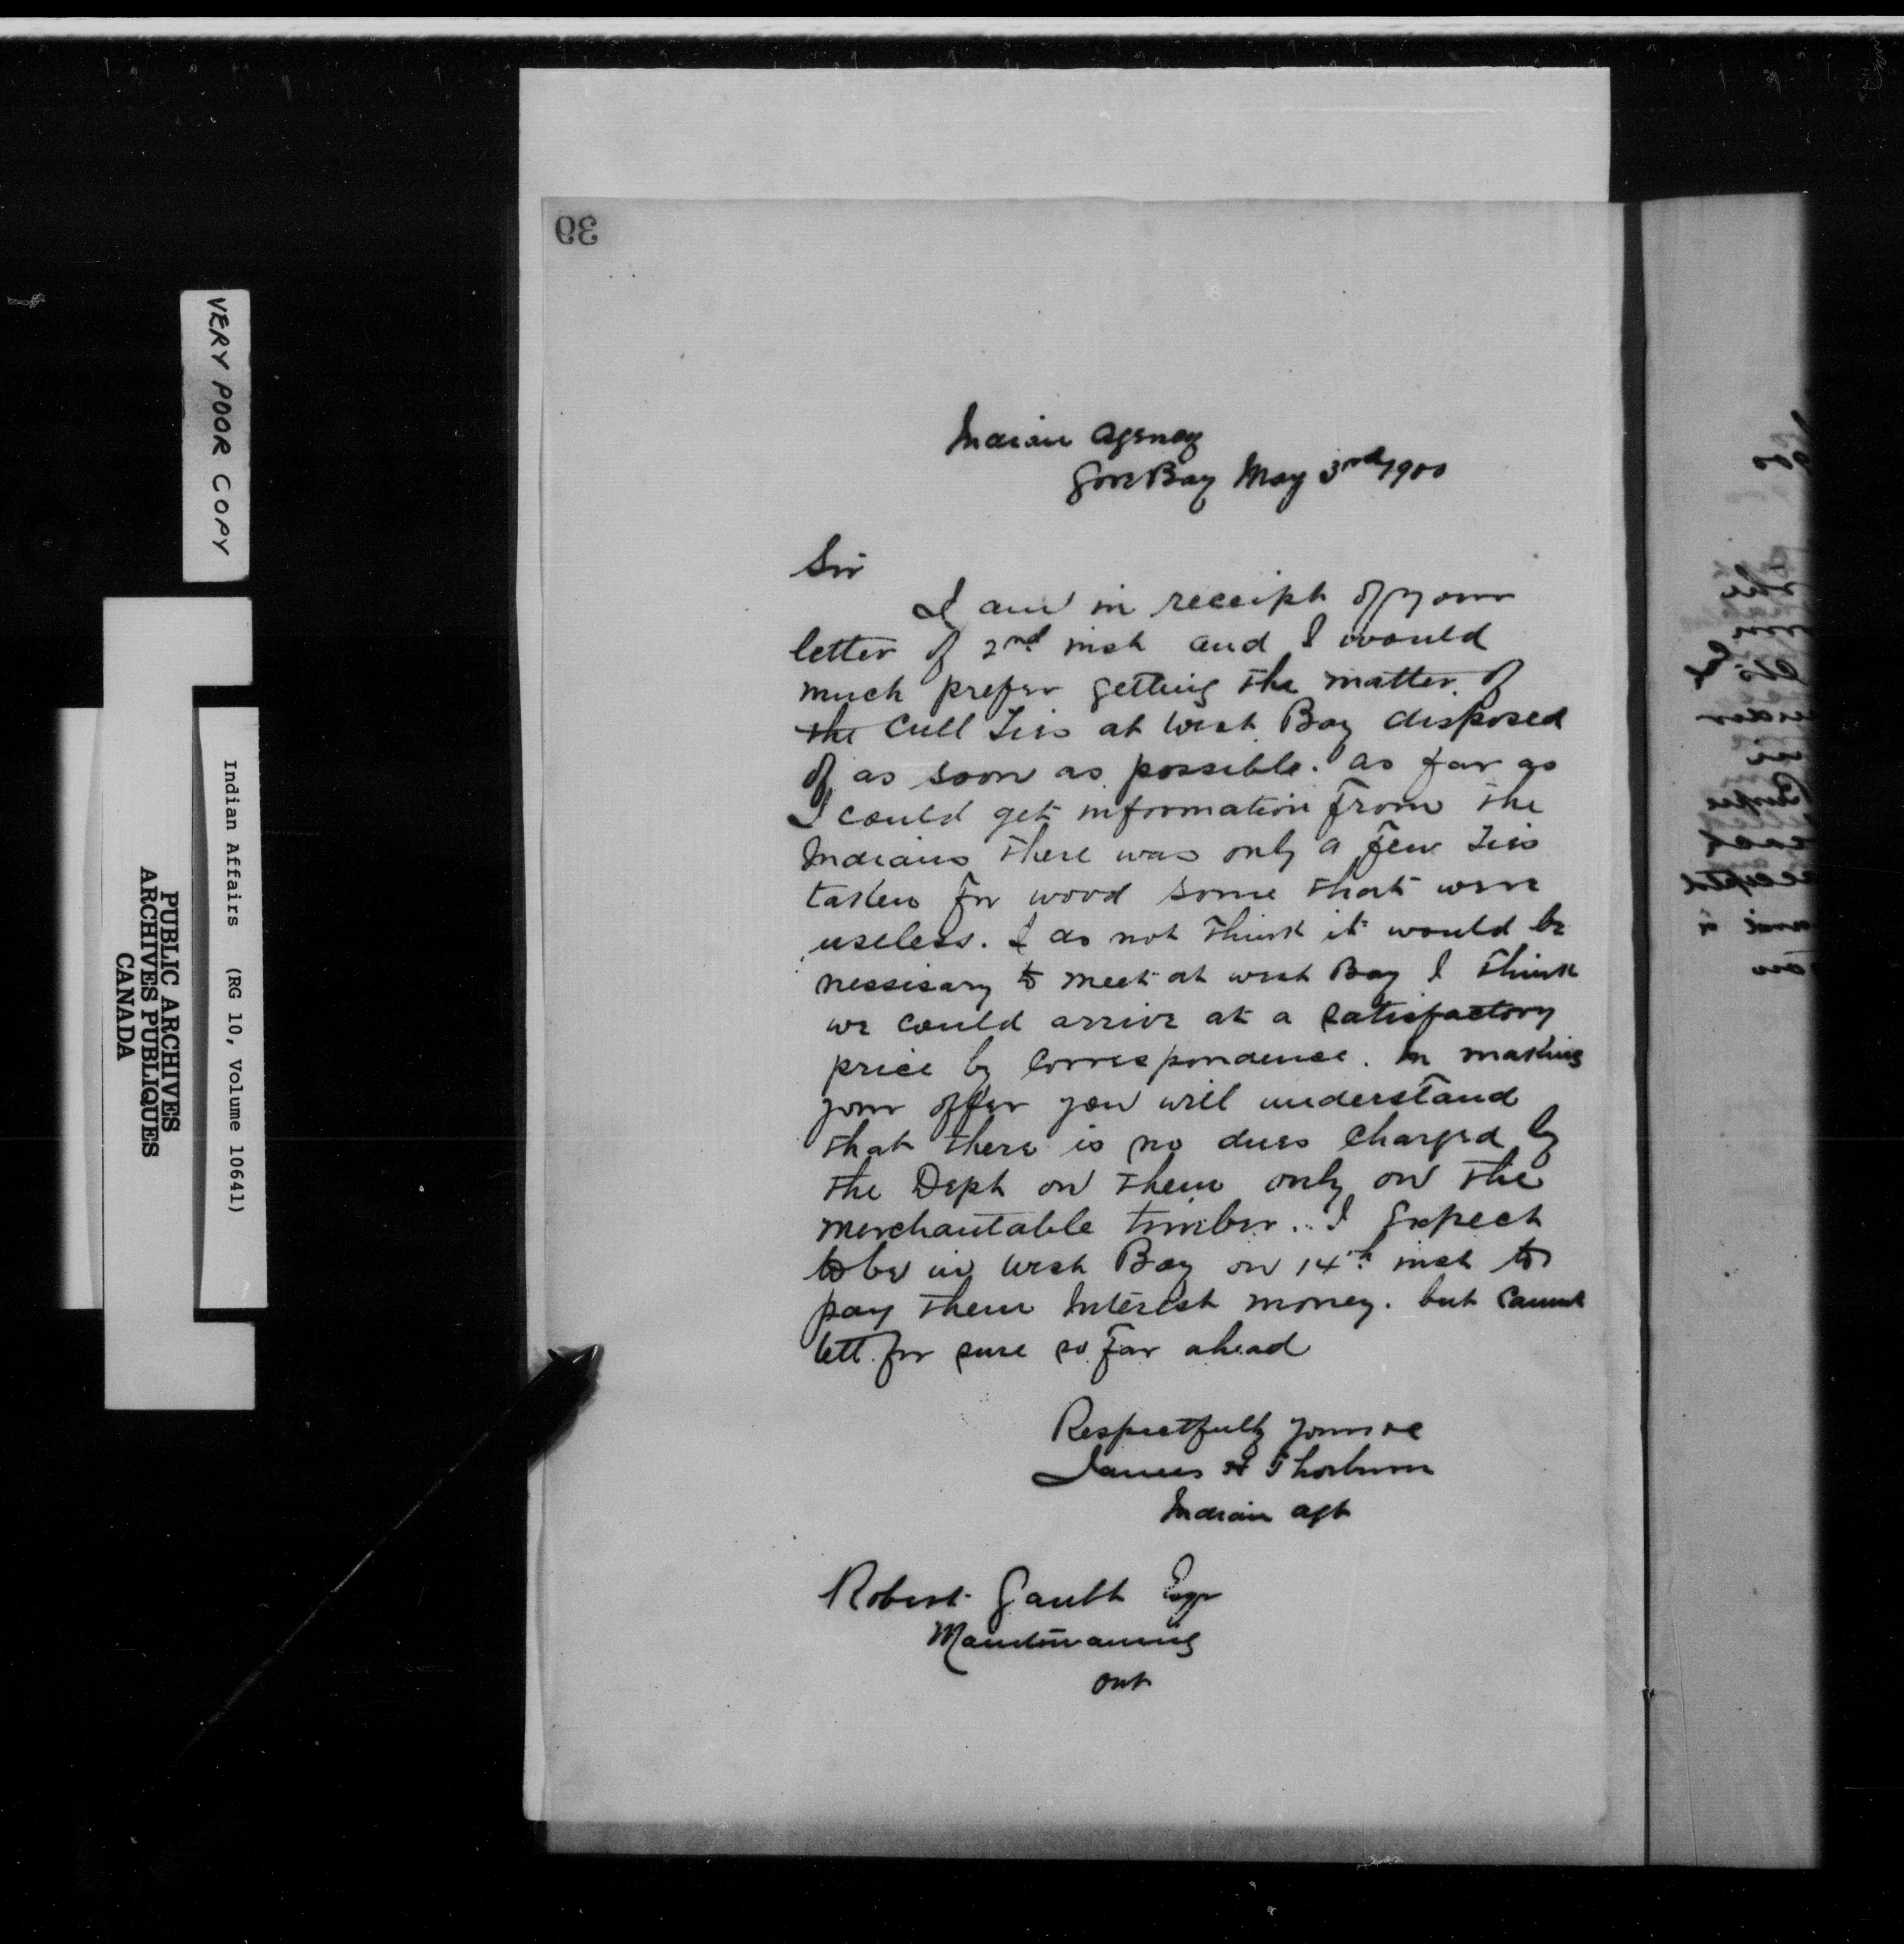 39
VERY POOR COPY
Indian Affairs (RG 10, Volume 10641)
PUBLIC ARCHIVES
ARCHIVES PUBLIQUES
CANADA
Indian Agency
Gore Bay May 3rd 1900
Sir
I am in receipt of your
letter of 2nd inst and I would
much prefer getting the matter of
the Cull Ties at West Bay disposed
of as soon as possible. as far as
I could get information from the
Indians there was only a few Ties
taken for wood some that were
useless. I do not think it would be
nessisary to meet at West Bay I think
we could arrive at a satisfactory
price by correspondence. In making
your offer you will understand
that there is no dues charged by
the Dept on them only on the
merchantable timber.. I expect
to be in West Bay on 14th inst to
pay them Interest money. but cannot
tell for sure so far ahead
Respectfully yours
James H Thorburn
Indian agt
Robert Gault Esqr
Manitowaning
Ont